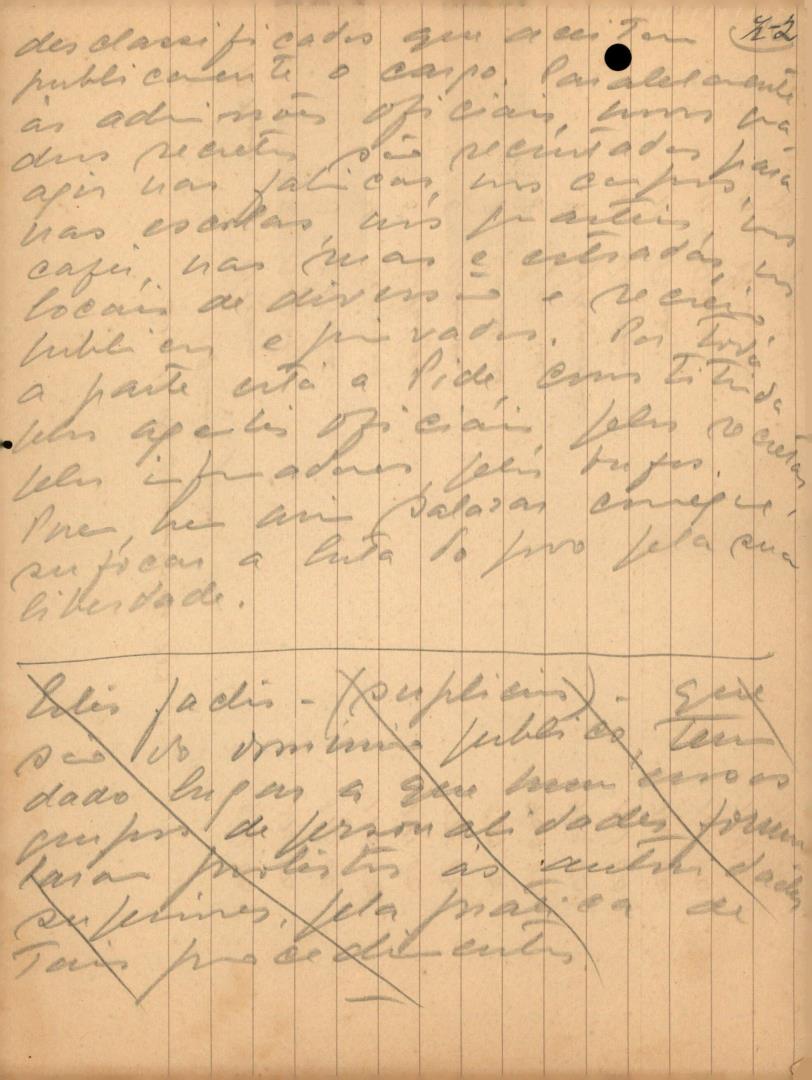 desclassificados que aceitam
publicamente o cargo. Paralelamente
às admissões oficiais, novos qua
dros secretos são recrutados para
agir nas fabricas, nos campos,
nas escolas, nos quarteis, nos
cafés, nas ruas e estradas, nos
locais de diversão e recreio,
publicos e privados. Por toda
a parte está a Pide, constituida
pelos agentes oficiais, pelos secretos
pelos informadores, pelos bufos.
Porem, nem assim Salazar consegue,
sufocar a luta do povo pela sua
liberdade.
Estes factos - (suplicios) - que
são do dominio publico, tem
dado lugar a que numerosos
grupos de personalidades formu
laram protestos às autoridades
superiores, pela prática de
tais procedimentos